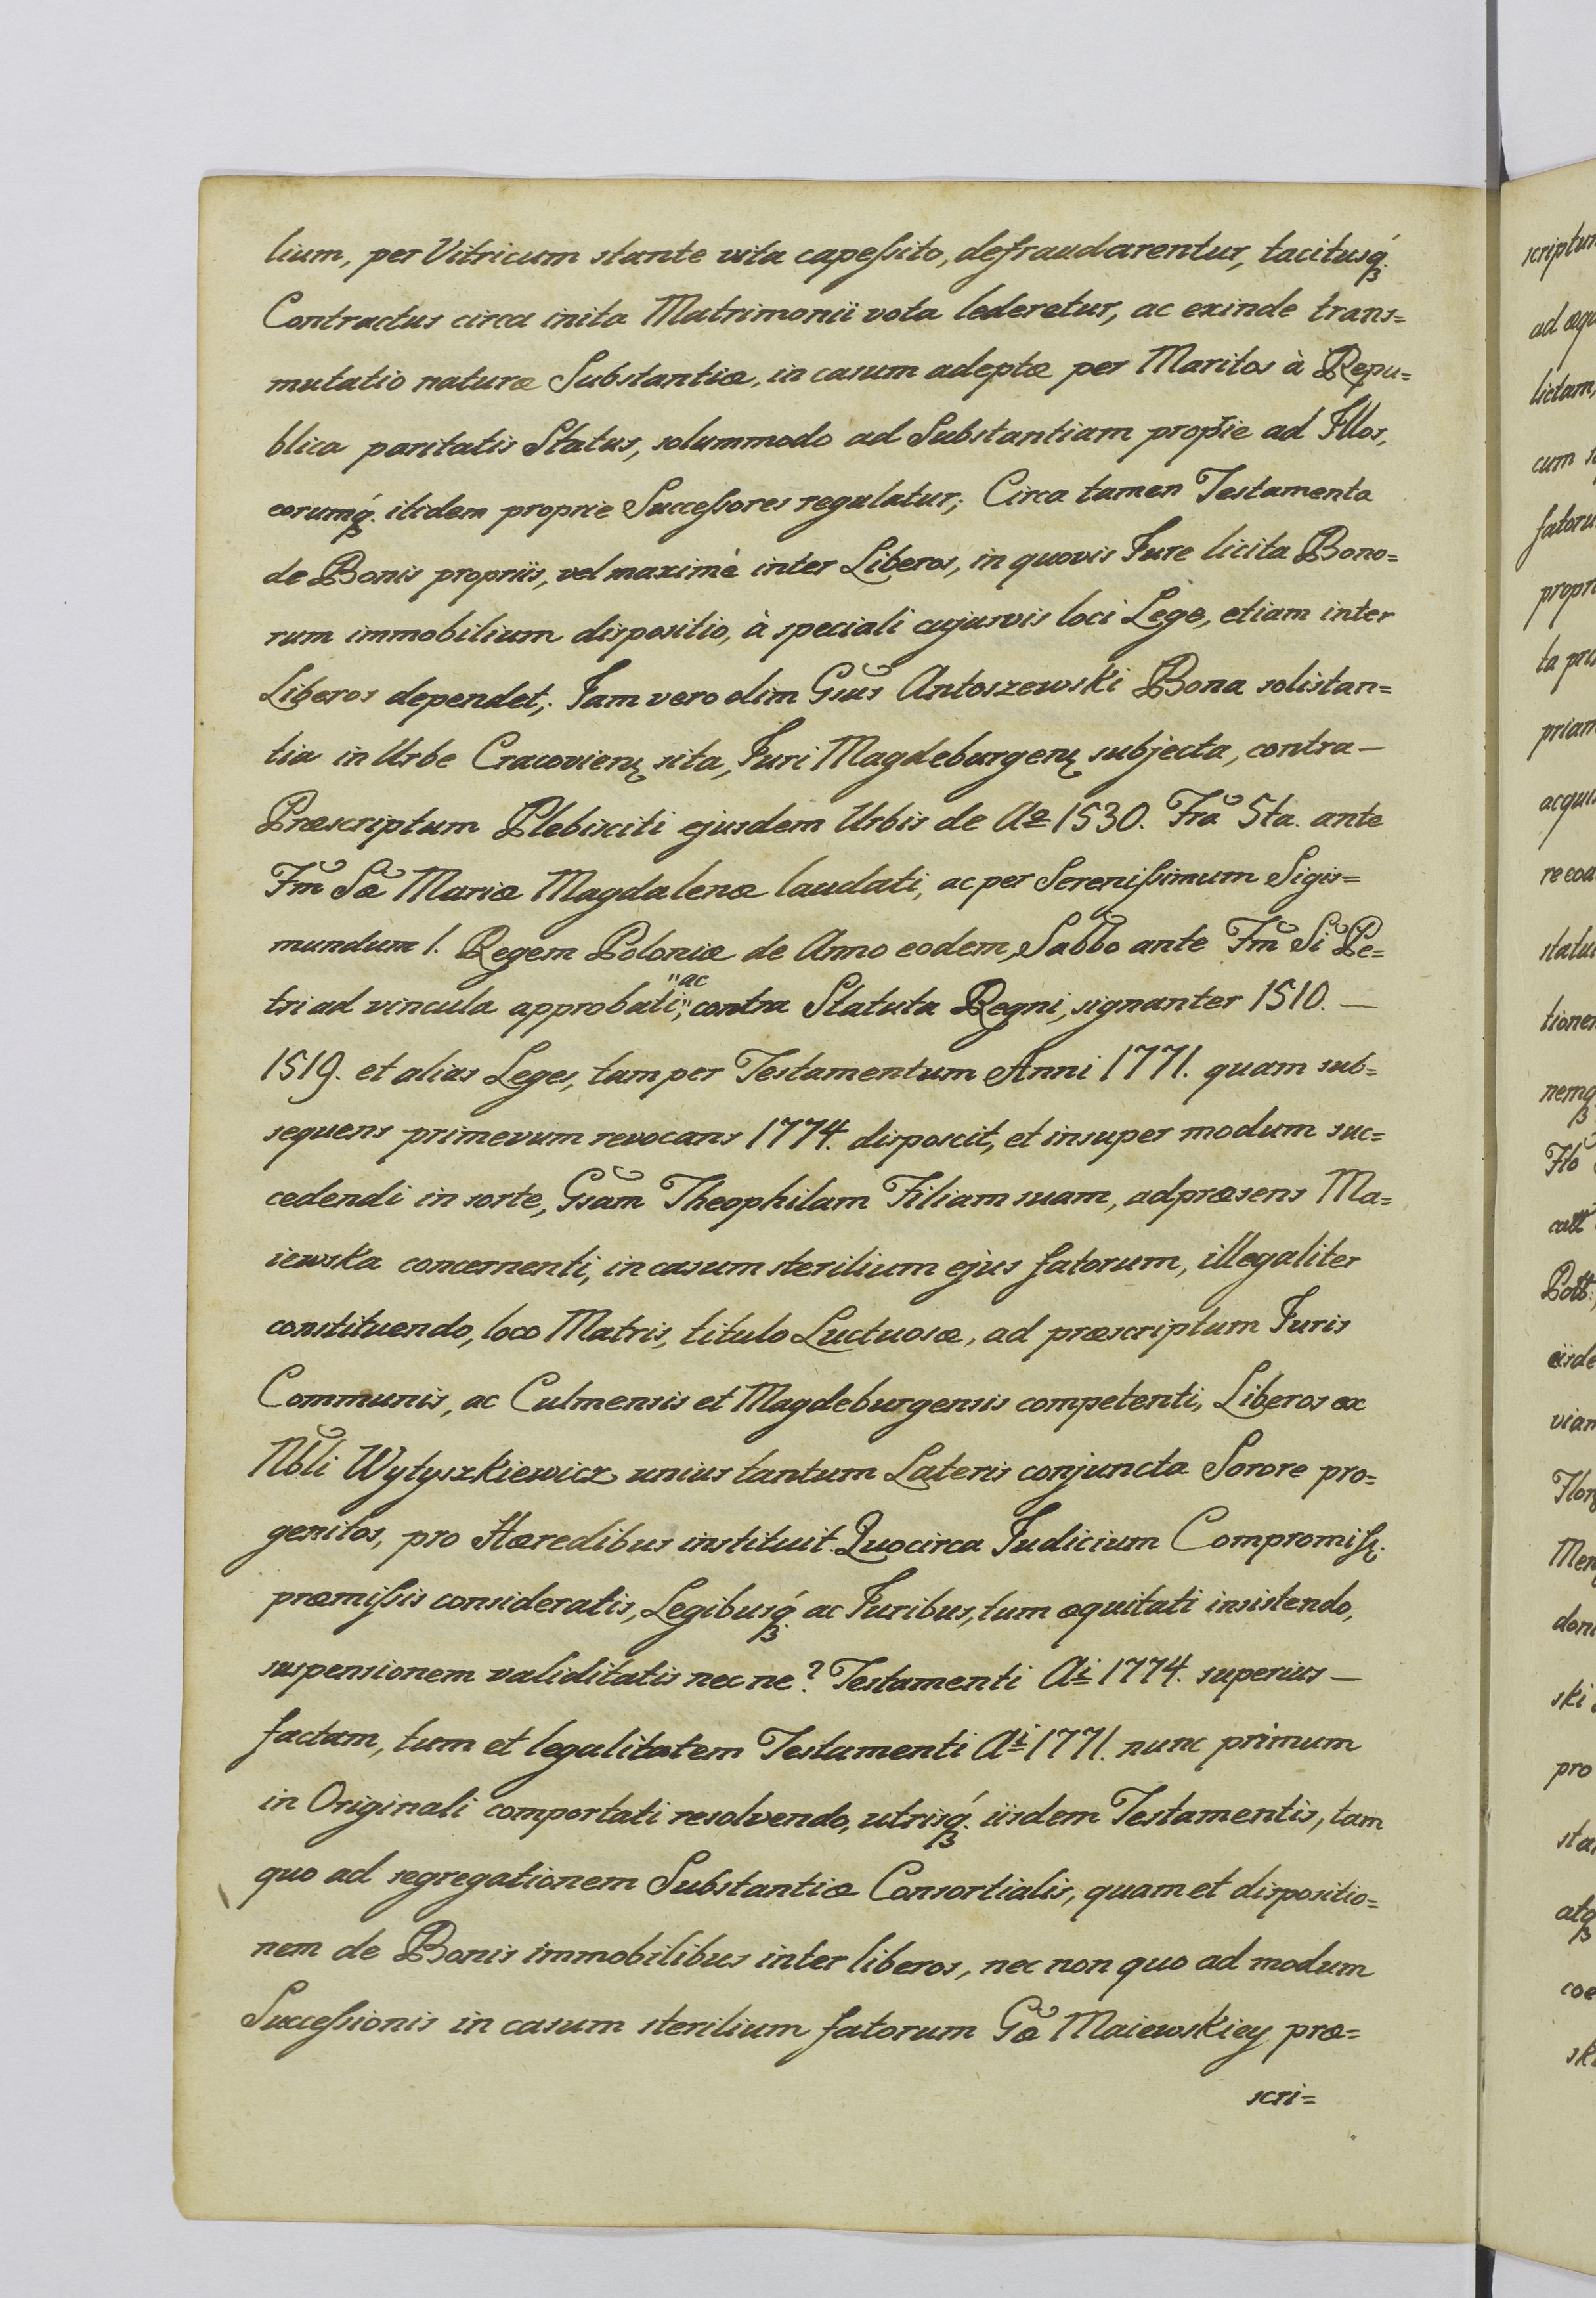 lium, per Vitricum stante vita capeſsito, defraudarentur, tacitusq́ꝫ
Contractus circa inita Matrimonii vota lederetur, ac exinde trans=
mutatio naturæ Substantiæ, in casum adeptæ per Maritos à Repu=
blica paritatis Status, solummodo ad Substantiam proprie ad Illos,
eorumq́ꝫ. itidem proprie Succeſsores regulatur; Circa tamen Testamenta
de Bonis propriis, vel maximè inter Liberos, in quovis Jure licita Bono=
rum immobilium dispositio, à speciali cujusvis loci Lege, etiam inter
Liberos dependet; Jam vero olim Gsus Antoszewski Bona solistan=
tia in Urbe Cracovienꝫ sita, Juri Magdeburgenꝫ subjecta, contra —
Præscriptum Plebisciti ejusdem Urbis de Aº 1530. Fra 5ta. ante
Fm̃ Sæ Mariæ Magdalenæ laudati, ac per Sereniſsimum Sigis=
mundum 1. Regem Poloniæ de Anno eodem, Sabbo ante Fm̃ Si Pe=
tri ad vincula approbati, "ac" contra Statuta Regni, signanter 1510. —
1519. et alias Leges, tam per Testamentum Anni 1771. quam sub=
sequens primevum revocans 1774. disposcit, et insuper modum suc=
cedendi in sorte, Gsam Theophilam Filiam suam, ad præsens Ma=
iewska concernenti, in casum sterilium ejus fatorum, illegaliter
constituendo, loco Matris, titulo Luctuosæ, ad præscriptum Juris
Communis, ac Culmensis et Magdeburgensis competenti, Liberos ex
Nbli Wytyszkiewicz unius tantum Lateris conjuncta Sorore pro=
genitos, pro Hæredibus instituit. Quocirca Judicium Compromiſsꝫ.
præmiſsis consideratis, Legibusq́ꝫ ac Juribus, tum æquitati insistendo,
suspensionem validitatis nec ne? Testamenti Ai 1774. superius —
factam, tum et legalitatem Testamenti Ai 1771. nunc primum
in Originali comportati resolvendo, utrisq́ꝫ. iisdem Testamentis, tam
quo ad segregationem Substantiæ Consortialis, quam et dispositio=
nem de Bonis immobilibus inter liberos, nec non quo ad modum
Succeſsionis in casum sterilium fatorum Gæ Maiewskiey præ=
scri=
scriptum
ad æqu
lictam,
cum
fatoru
propri
ta
priam
acquis
statu
tionem
Flo
Pott:
viam
pro
sta
coe